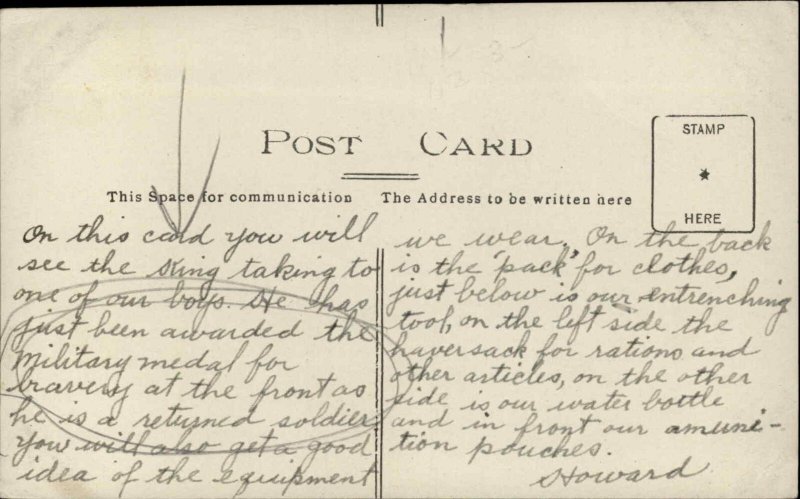 POST CARD
STAMP
HERE
This Space for communication
The Address to be written here
On this card you will
see the King taking to
one of our boys. He has
just been awarded the
military medal for
bravery at the front as
he is a returned soldier
you will also get a good
idea of the equipment
we wear. On the back
is the "pack" for clothes,
just below is our entrenching
tool, on the left side the
haversack for rations and
other articles, on the other
side is our water bottle
and in front our amuni-
tion pouches.
Howard